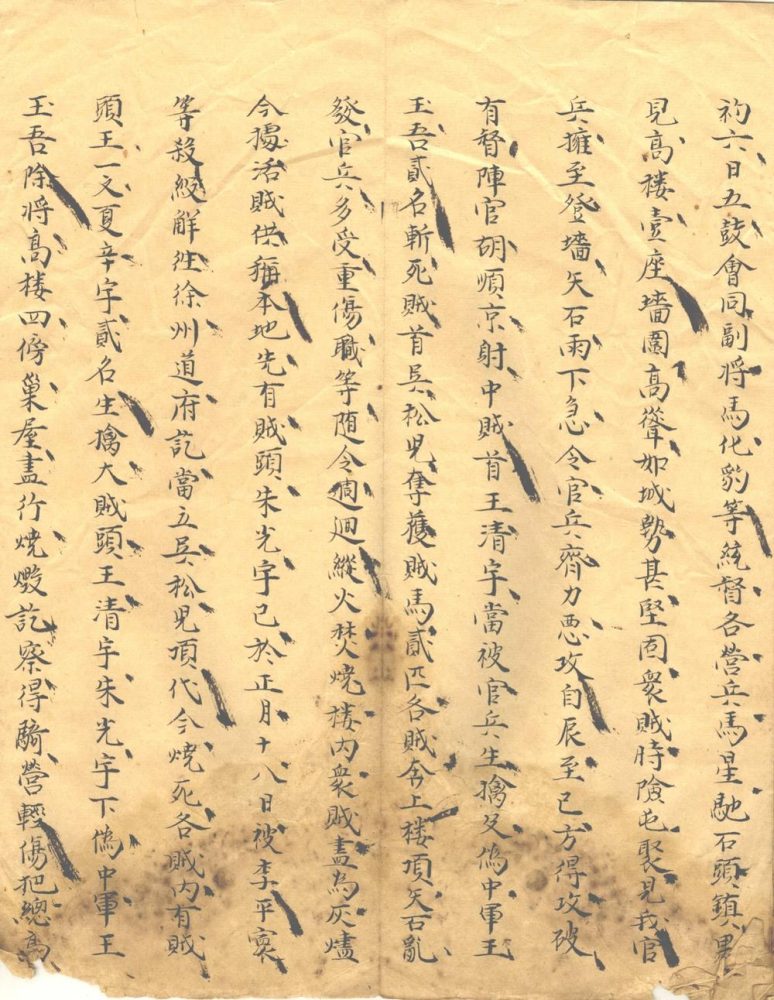 初六日五鼓會同副将馬化豹等統督各營兵馬星馳石頭鎮果
見高楼壹座墻圍高聳如城勢甚堅固衆賊恃險屯聚見我官
兵擁至登墻矢石雨下急令官兵齊力悪攻自辰至已方得攻破
有督陣官胡順京射中賊首王清宇當被官兵生擒及偽中軍王
玉吾貳名斬死賊首吴松児奪獲賊馬貳匹各賊奔上楼頂矢石亂
發官兵多受重傷職等随令週迴縱火焚燒楼内衆賊盡為灰燼
今據活賊供稱本地先有賊頭朱光宇已於正月十八日被李平寰
等殺絞解徃徐州道府訖當立吴松児頂代今燒死各賊内有賊
頭王一文夏辛宇貳名生擒大賊頭王清宇朱光宇下偽中軍王
玉吾除将高楼四傍巢屋盡行燒燬訖察得騎營輕傷把總高